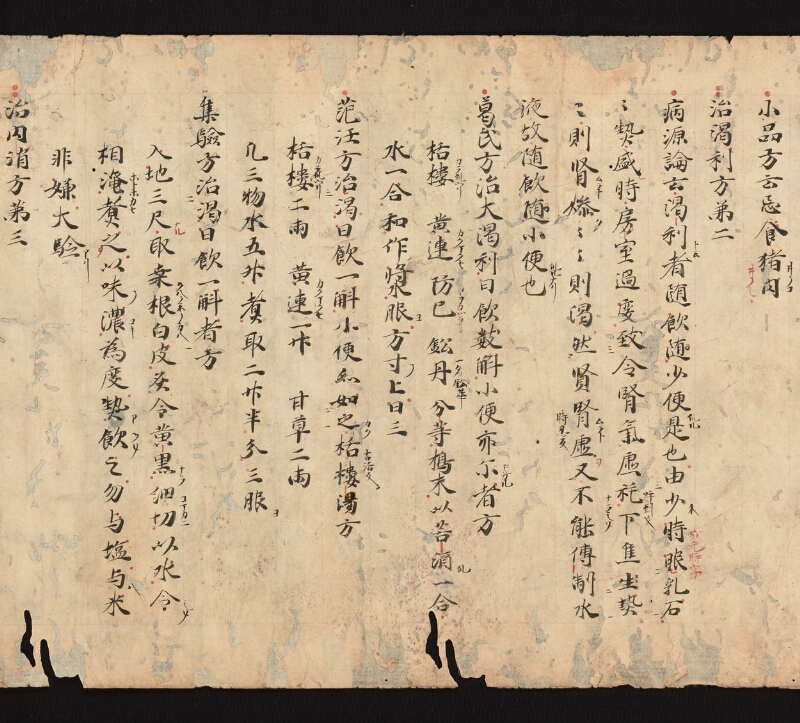 小品方云忌食猪肉
治渇利方第二
病源論云渇利者随飲随少便是也由少時眼乳石
〻熱盛時房室過度致令腎氣虚秏下焦生熱
〻則腎燥〻則渇然腎虚又不能傅制水
液故随飲随小便也
葛氏方治大渇利日飲數斛小便亦尓者方
栝樓 黄連 防己 鈆丹 分等搗末以苦酒一合
水一合和作漿服方寸匕日三
范汪方治渇日飲一斛小便亦如之栝樓湯方
栝樓二兩 黄連一升 甘草二兩
凡三物水五升煮取二升半分三服
集驗方治渇日飲一斛者方
入地三尺取桒根白皮炙令黄黒細切以水令
相淹煑之以味濃為度熱飲之勿与塩与米
非嫌大驗
治内消方第三